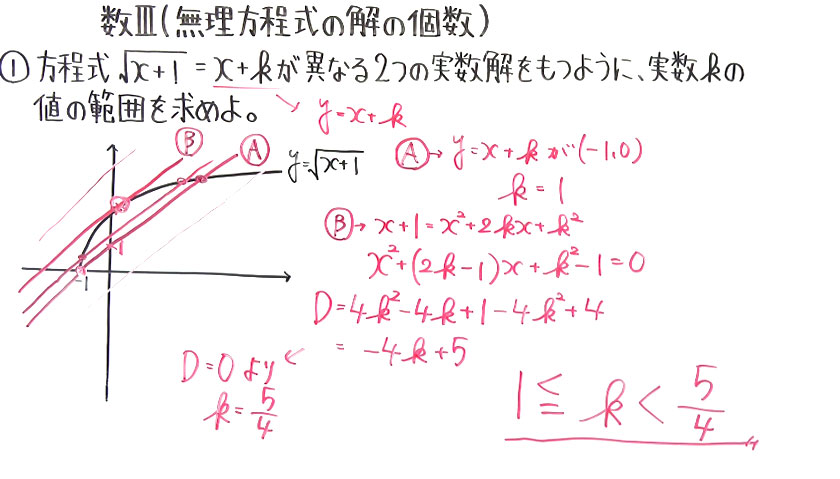 数Ⅲ(無理方程式の解の個数)
① 方程式 √x+1 = x+k が異なる2つの実数解をもつように、実数kの
値の範囲を求めよ。
y=x+k
Ⓑ
Ⓐ
y=√x+1
1
-1
Ⓐ→ y=x+k が(-1,0)
k=1
Ⓑ→ x+1=x²+2kx+k²
x²+(2k-1)x+k²-1=0
D=4k²-4k+1-4k²+4
= -4k+5
D=0 より
k=5/4
1≦k<5/4